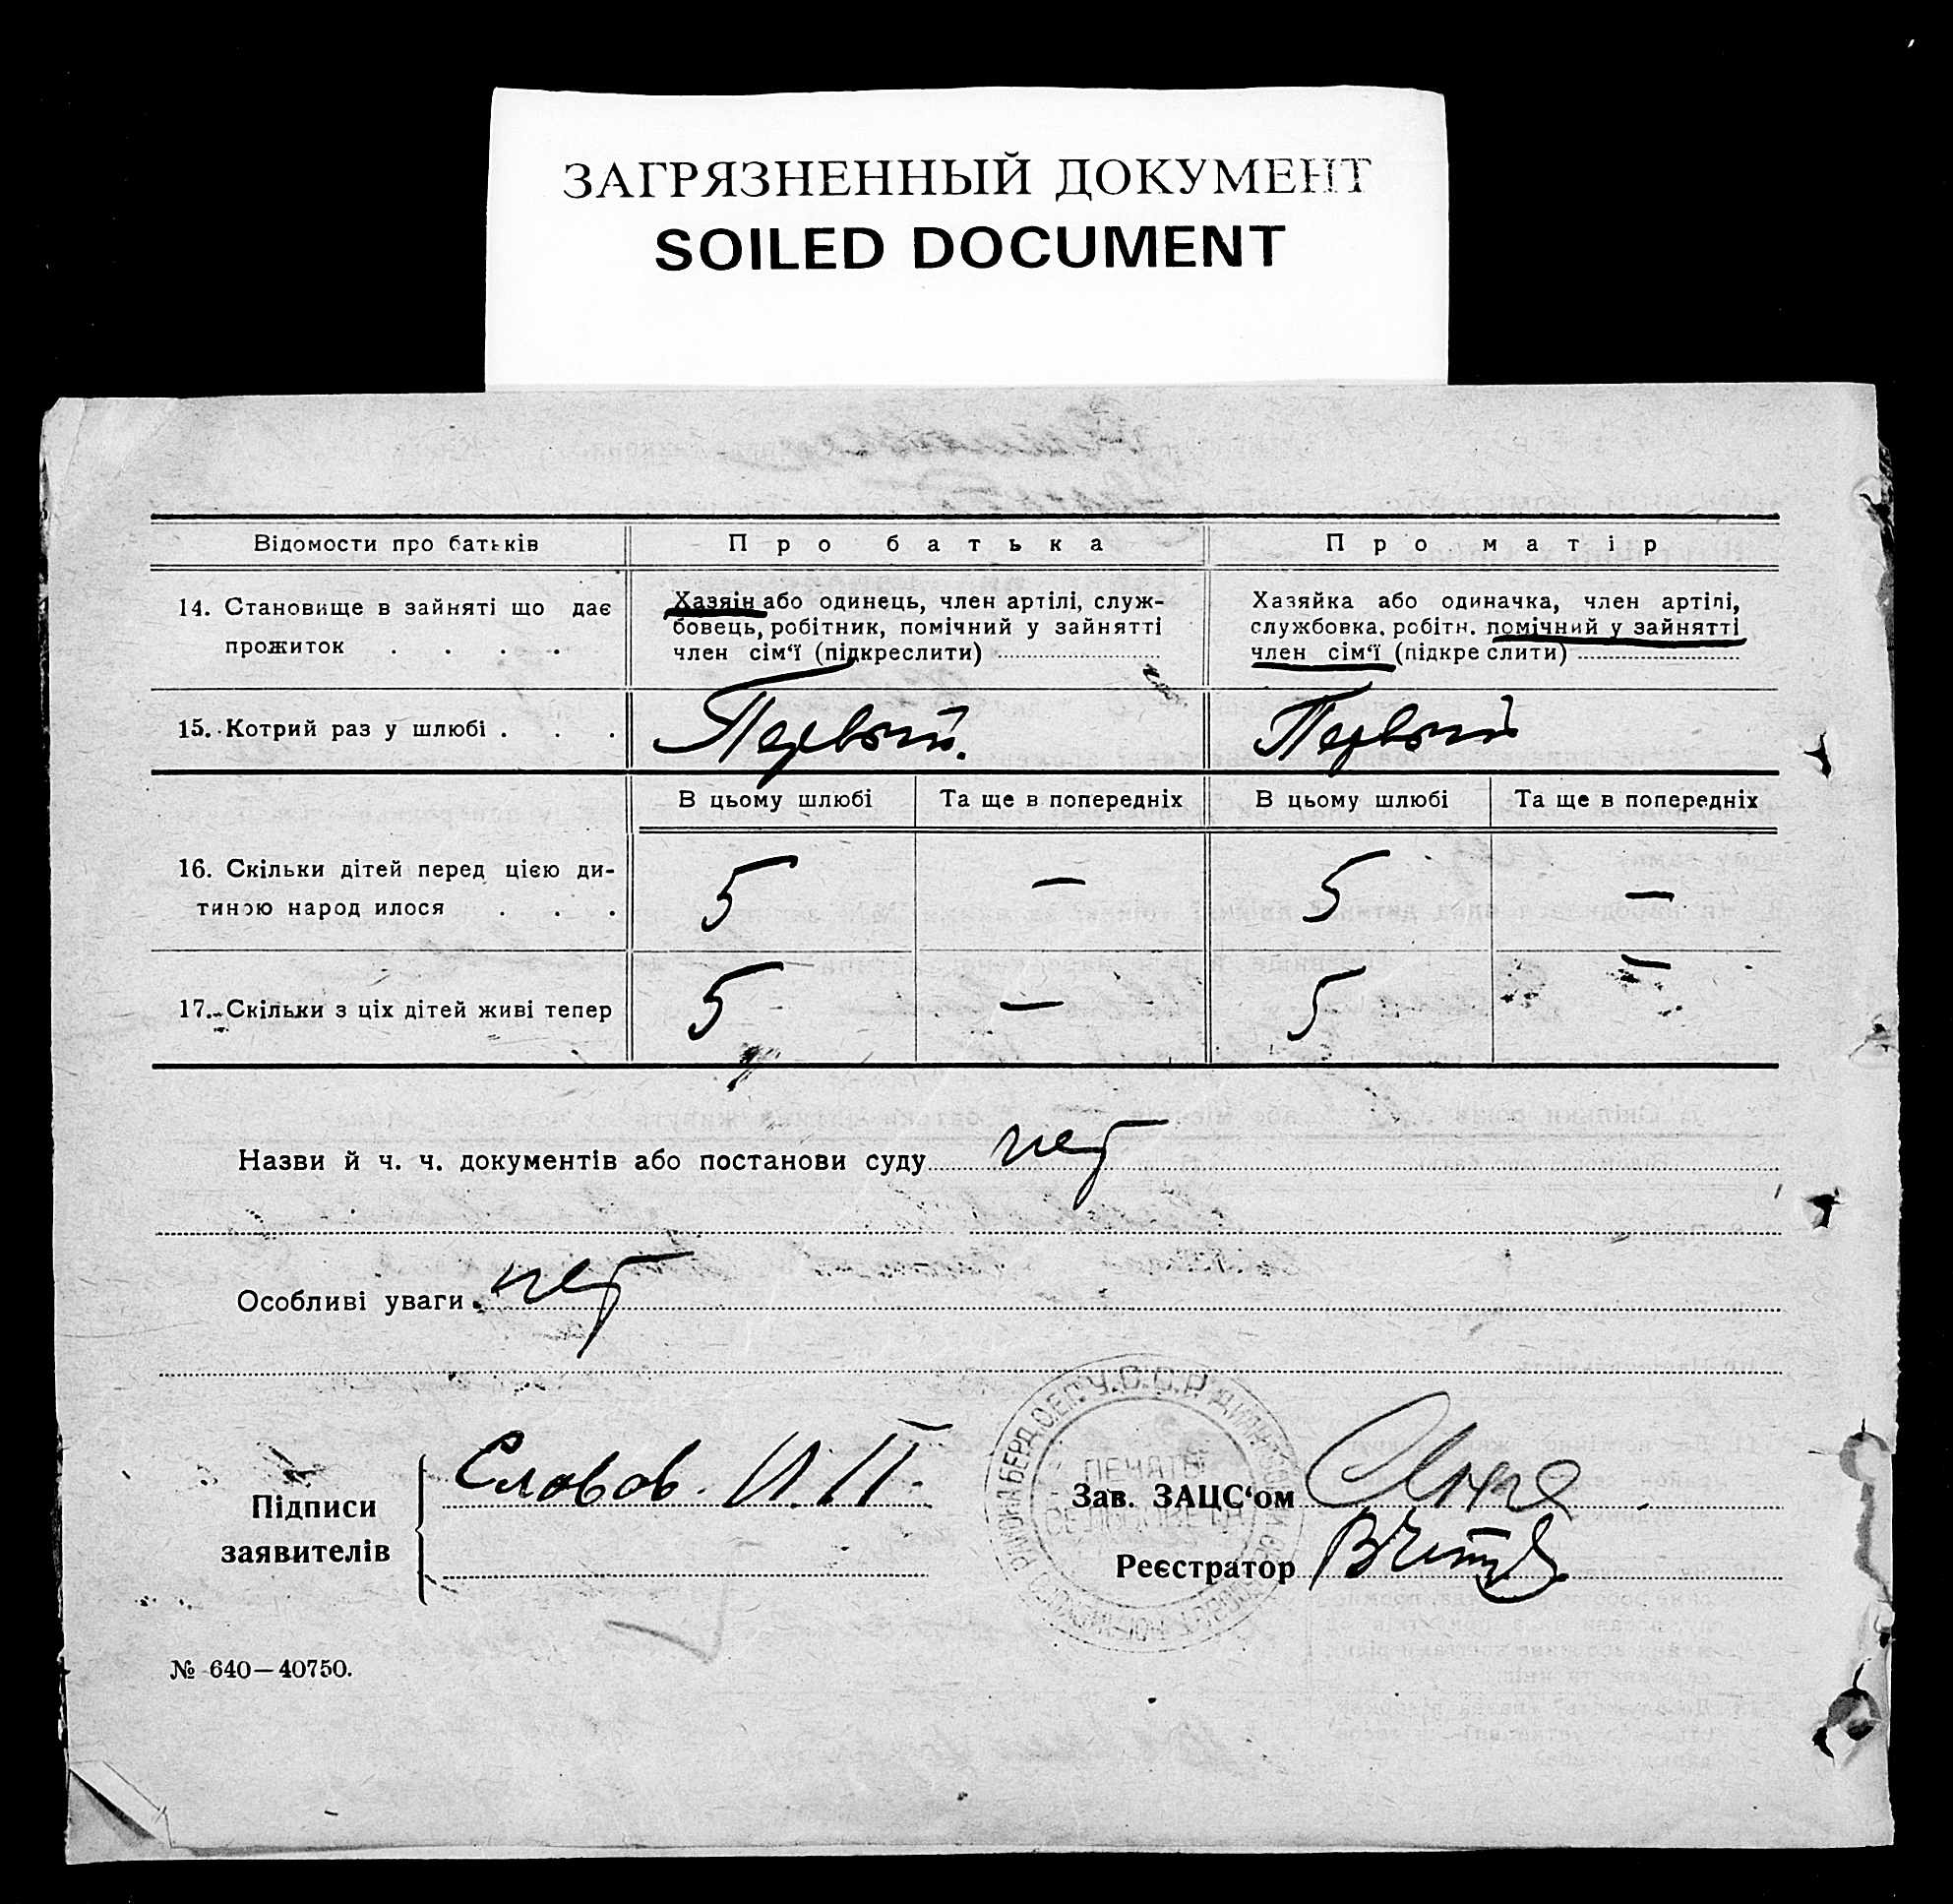 ЗАГРЯЗНЕННЫЙ ДОКУМЕНТ
SOILED DOCUMENT
Відомости про батьків
Про батька
Про матір
14. Становище в зайняті що дає
прожиток . . . .
Хазяін або одинець, член артілі, служ-
бовець, робітник, помічний у зайнятті
член сім'ї (підкреслити)
Хазяйка або одиначка, член артілі,
службовка, робітн. помічний у зайнятті
член сім'ї (підкре слити)
15. Котрий раз у шлюбі . . .
Первый.
Первый
В цьому шлюбі
Та ще в попередніх
В цьому шлюбі
Та ще в попередніх
16. Скільки дітей перед цією ди-
тиною народ илося . . .
5
—
5
—
17. Скільки з ціх дітей живі тепер
5
—
5
—
Назви й ч. ч. документів або постанови суду нет
Особливі уваги нет
Підписи
заявителів
Словов И. П.
У.С.С.Р.
ПЕЧАТЬ
Зав. ЗАЦС'ом
Реєстратор
№ 640—40750.